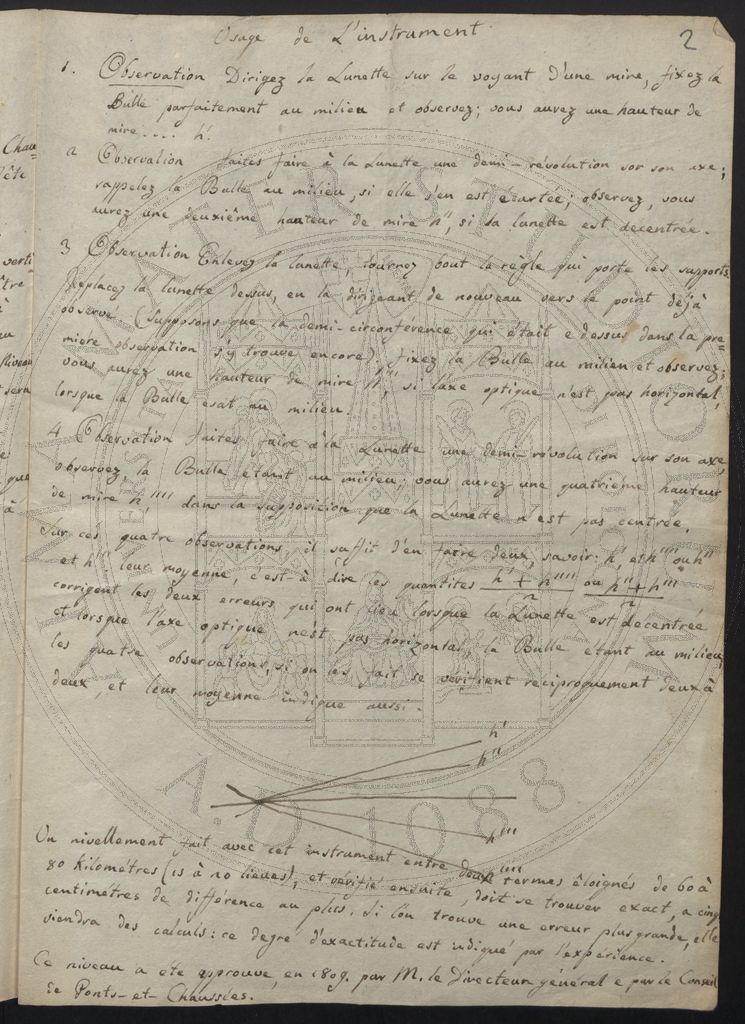 Usage de L'instrument
2
1. Observation Dirigez la Lunette sur le voyant d'une mire, fixez la
Bulle parfaitement au milieu et observez; vous aurez une hauteur de
mire.... h'.
2 Observation faites faire à la Lunette une demi-révolution sor son axe;
rappelez la Bulle au milieu, si elle s'en est écartée; observez, vous
aurez une deuxième hauteur de mire h'', si la lunette est decentrée.
3 Observation Enlevez la lunette, tournez bout la règle qui porte les supports
Replacez la lunette dessus, en la dirigeant de nouveau vers le point déjà
observé. (Supposons que la demi-circonférence qui était e dessus dans la pre=
miere observation s'y trouve encore), fixez la Bulle au milieu et observez;
vous aurez une hauteur de mire h''', si l'axe optique n'est pas horizontal,
lorsque la Bulle esat au milieu.
4 Observation faites faire à la Lunette une demi-révolution sur son axe,
observez, la Bulle etant au milieu; vous aurez une quatrième hauteur
de mire h'''' dans la supposicion que la Lunette n'est pas centrée.
Sur ces quatre observations, il suffit d'en faire deux, savoir: h', et h'''' ou h''
et h''': leur moyenne, c'est-à dire les quantites h' + h'''' ou h'' + h'''
2 2
corrigent les deux erreurs qui ont lieu lorsque la Lunette est decentrée
et lorsque l'axe optique n'est pas horizontal, la Bulle etant au milieu,
les quatse observations, si on les fait se vérifient reciproquement deux à
deux, et leur moyenne indique aussi.
h'
h''
h'''
h''''
Un nivellement fait avec cet instrument entre deux termes éloignés de 60 à
80 Kilométres (15 à 20 lieues), et verifié ensuite, doit se trouver exact, a cinq
centimétres de différence au plus. Si l'on trouve une erreur plus grande, elle
viendra des calculs: ce degré d'exactitude est indiqué par l'expérience.
Ce niveau a été approuvé en 1809. par M. le Directeur général e par le Conseil
de Ponts-et-Chaussées.
A.D. 1088